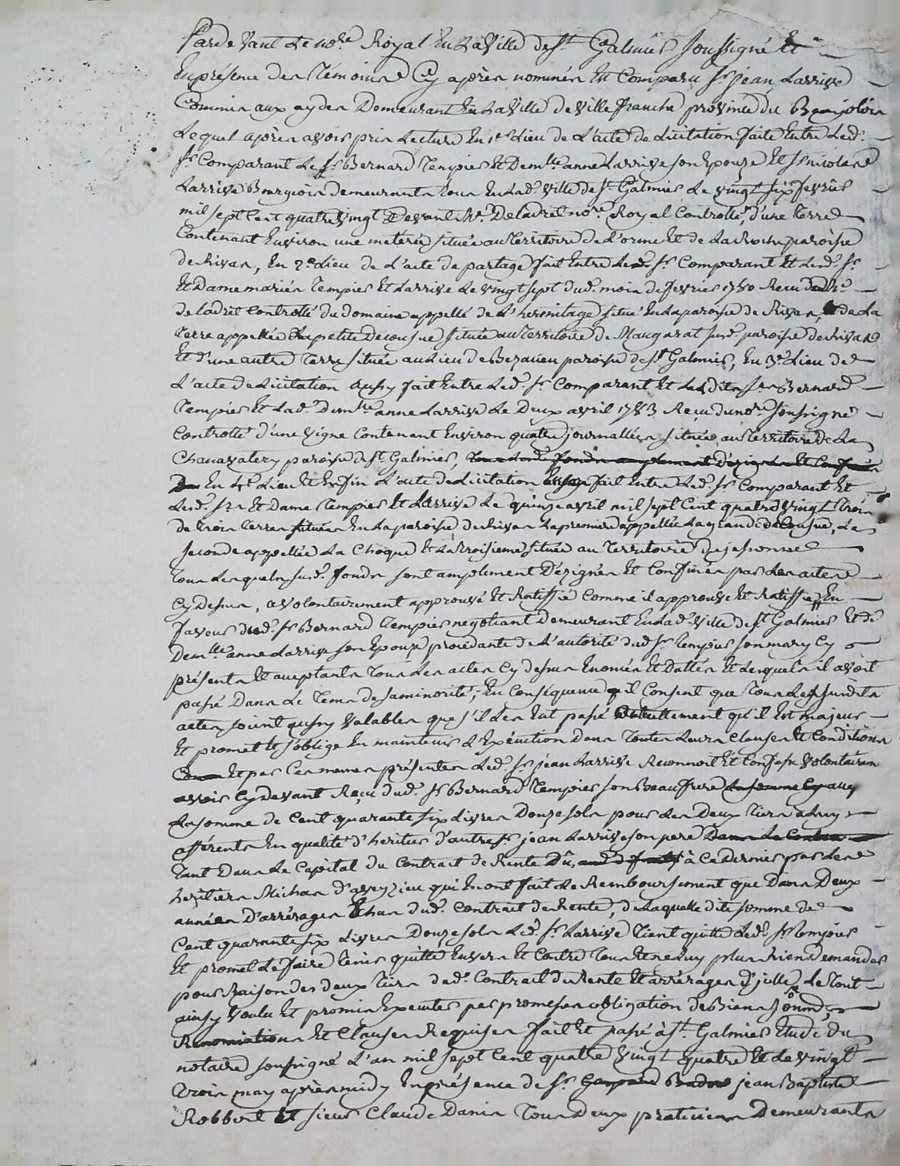 Pardevant Le no.re Royal En La Ville de St Galmier soussigné Et
En présence des témoins Cy après nommés Est Comparu Sr jean Larrive
Commis aux aydes Demeurant En La Ville de Ville franche province du Beaujolois
Lequel après avoir pris Lecture En 1er Lieu de L'acte de Licitation faite Entre Led.
Sr Comparant Le Sr Bernard tempier Et Dem.lle anne Larrive son Epouze Et Sr nicolas
Larrive Bourgeois demeurants tous En Lad. Ville de St Galmier Le vingt six fevrier
mil sept Cent quatre vingt Devant Me Deladret no.re Royal Controllé, d'une terre
Contenant Environ une meterée située au territoire de L'orme Et de La Roche paroisse
de Rivas, En 2e Lieu de L'acte de partage fait Entre Led. Sr Comparant Et Led. Sr
Et Dame mariés tempier Et Larrive Le vingt sept dud. mois de fevrier 1780 Recu dud. Me
de Ladret Controllé du domaine appellé de L'hermitage situé En La paroisse de Rivas, Et de La
terre appellée La petite Decousue située au territoire de Maugarat sus.d paroisse de Rivas
Et d'une autre terre située au Lieu de paroisse de St Galmier, En 3e Lieu de
L'acte de Licitation aussy fait Entre Led. Sr Comparant Et Lesdits Srs Bernard
tempier Et Lad. Dem.lle anne Larrive Le Deux avril 1783 Recu du no.re soussigné
Controllé d'une vigne Contenant Environ quatre journallées située au territoire de La
paroisse de St Galmier,
En 4e Lieu Et Enfin L'acte de Licitation fait Entre Led. Sr Comparant Et
Led. Sr Et Dame tempier Et Larrive Le quinze avril mil sept Cent quatre vingt trois
de trois terres située En La paroisse de Rivas La premiere appellée La grande deCousue, La
seconde appellée La Choque Et La troisieme située au territoire de
tous Lesquels susd. fonds sont amplement Dézignés Et Confinés par Les actes
Cy dessus, a volontairement approuvé Et Ratiffié Comme il approuve Et Ratiffie En
faveur dud. Sr Bernard tempier negotiant Demeurant En Lad. Ville de St Galmier Et de
Dem.lle anne Larrive son Epouze procedante de L'autorité dud. Sr tempier son mary Cy
présents Et acceptants tous Les actes Cy dessus Enoncés Et Dattés Et Lesquels il avoit
passé Dans Le tems de sa minorité, En Conséquence il Consent que tous Les susdits
actes soient aussy Valables que s'il Les Eut passé actuellement qu'il Est majeur
Et promet Et s'oblige En maintenir L'Exécution Dans toutes Leurs Clauses Et Conditions
Et par Ces memes présentes Led. Sr jean Larrive Reconnoit Et Confesse volontairem.
avoir Cy devant Recu dud. Sr Bernard tempier son Beaufrere
La somme de Cent quarante six Livres Douze sols pour Les Deux tiers a Luy
afférents En qualité d'heritier d'autre Sr jean Larrive son pere
tant Dans Le Capital du Contrat de Rente Dû à Ce Dernier par Les
héritiers Michas d'aveyzieu qui En ont fait Le Remboursement que Dans Deux
années D'arrérages Echus dud. Contrat de Rente, de Laquelle dite somme de
Cent quarante six Livres Douze sols Led. Sr Larrive tient quitte Led. Sr tempier
Et promet Le faire tenir quitte Envers Et Contre tous Et ne luy plus Rien demander
pour Raison des deux tiers dud. Contrat de Rente Et arrérages d'jcelle, Le tout
ainsy Voulu Et promis Executer par promesse obligation de Biens soumi.
Renonciations Et Clauses Requises fait Et passé à St. Galmier Etude du
notaire soussigné L'an mil sept Cent quatre vingt quatre Et Le vingt
trois may après midy En présence de Sr jean Baptiste
Robbert Et sieur Claude Danis tous deux praticiens Demeurants